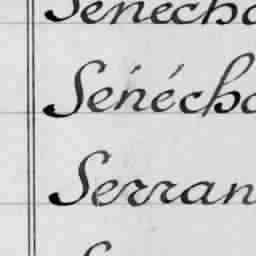 Sénécha
Sénécha
Serran